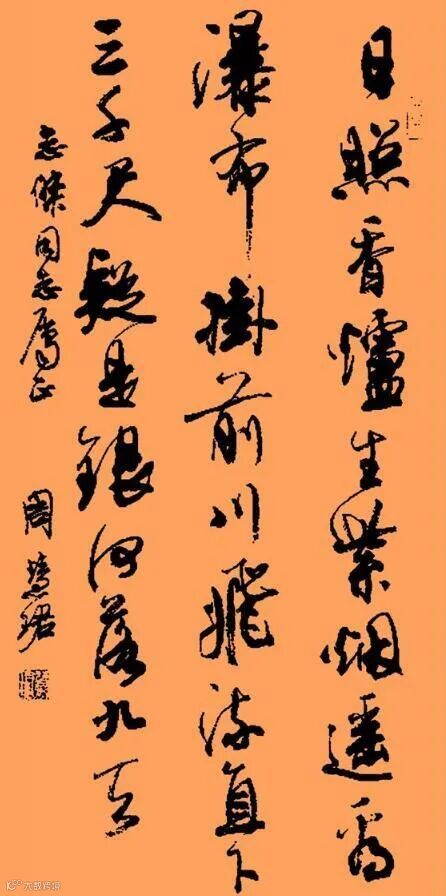 日照香爐生紫烟遥看
瀑布掛前川飛流直下
三千尺疑是銀河落九天
志傑同志属正
周慧珺
大数跨境